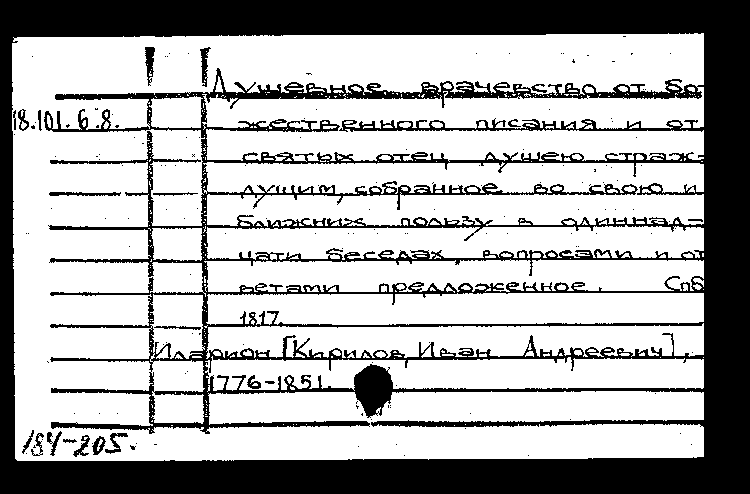 Душевное врачевство от Бо-
18.101.6.8.
жественного писания и от
святых отец душею страж-
дущим, собранное во свою и
ближних пользу в одиннад-
цати беседах, вопросами и от
ветами предложенное. Спб
1817.
Иларион [Кирилов, Иван Андреевич],
1776-1851.
184-205.